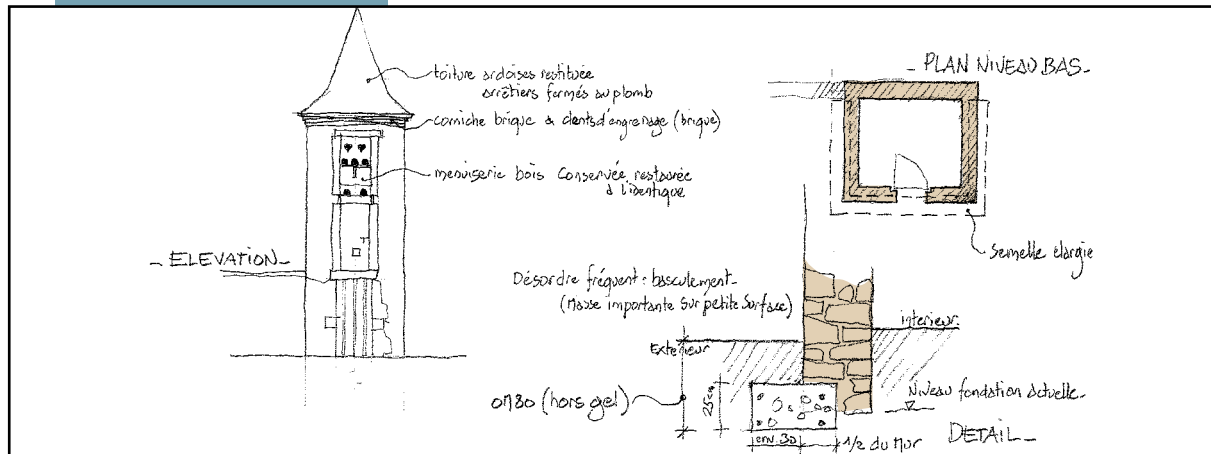 toiture ardoises restituée
arrêtiers fermés au plomb
corniche brique & dents d'engrenage (brique)
menuiserie bois conservée restaurée
à l'identique
_ ELEVATION_
_ PLAN NIVEAU BAS_
semelle élargie
Désordre fréquent : basculement_
(Masse importante sur petite surface)
intérieur.
Extérieur
Niveau fondation actuelle_
0m80 (hors gel)
25cm
env. 30
1/2 du mur
DETAIL_